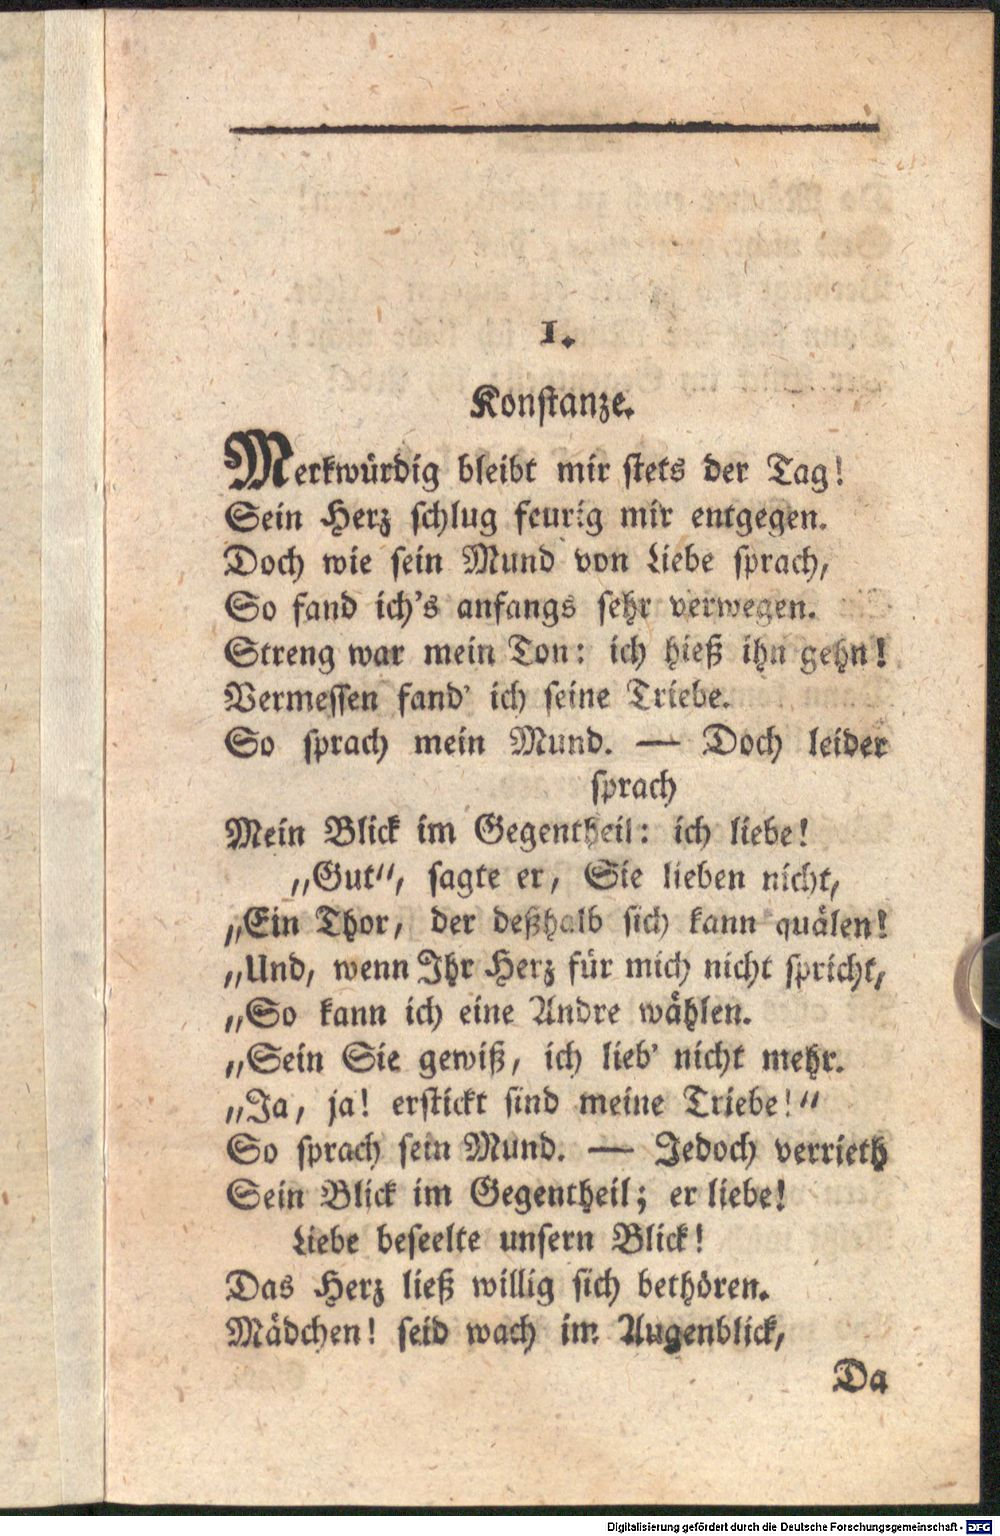 1.
Konstanze.
Merkwürdig bleibt mir stets der Tag!
Sein Herz schlug feurig mir entgegen.
Doch wie sein Mund von Liebe sprach,
So fand ich's anfangs sehr verwegen.
Streng war mein Ton: ich hieß ihn gehn!
Vermessen fand' ich seine Triebe.
So sprach mein Mund. — Doch leider
sprach
Mein Blick im Gegentheil: ich liebe!
„Gut“, sagte er, Sie lieben nicht,
„Ein Thor, der deßhalb sich kann quälen!
„Und, wenn Ihr Herz für mich nicht spricht,
„So kann ich eine Andre wählen.
„Sein Sie gewiß, ich lieb' nicht mehr.
„Ja, ja! erstickt sind meine Triebe!“
So sprach sein Mund. — Jedoch verrieth
Sein Blick im Gegentheil; er liebe!
Liebe beseelte unsern Blick!
Das Herz ließ willig sich bethören.
Mädchen! seid wach im Augenblick,
Da
Digitalisierung gefördert durch die Deutsche Forschungsgemeinschaft - DFG